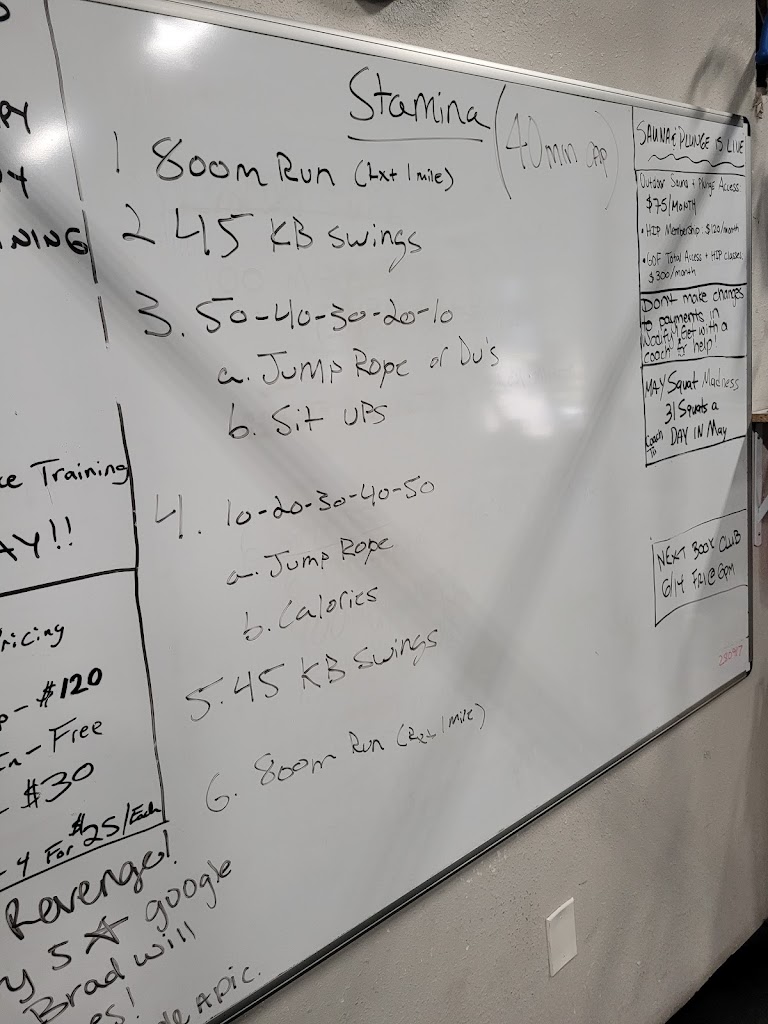 NING
ce Training
AY!!
ricing
- $120
In - Free
- $30
- 4 For $25/Each
Revenge!
y 5 ☆ google
Brad will
es!
de A Pic.
Stamina (40 min CAP)
1 800m Run (Rxt 1 mile)
2 45 KB Swings
3. 50-40-30-20-10
a. Jump Rope or Du's
b. Sit UPS
4. 10-20-30-40-50
a. Jump Rope
b. Calories
5. 45 KB Swings
6. 800m Run (Rxt 1 mile)
SAUNA & PLUNGE IS LIVE
Outdoor Sauna + Plunge Access
$75/MONTH
• HIP Membership $120/month
• GOF Total Access + HIP classes
$300/month
Dont make changes
to payments in
Wodify! Get with a
coach for help!
MAY Squat Madness
31 Squats a
DAY IN May
Coach To
NEXT BOOK CLUB
6/14 FRI @ 6pm